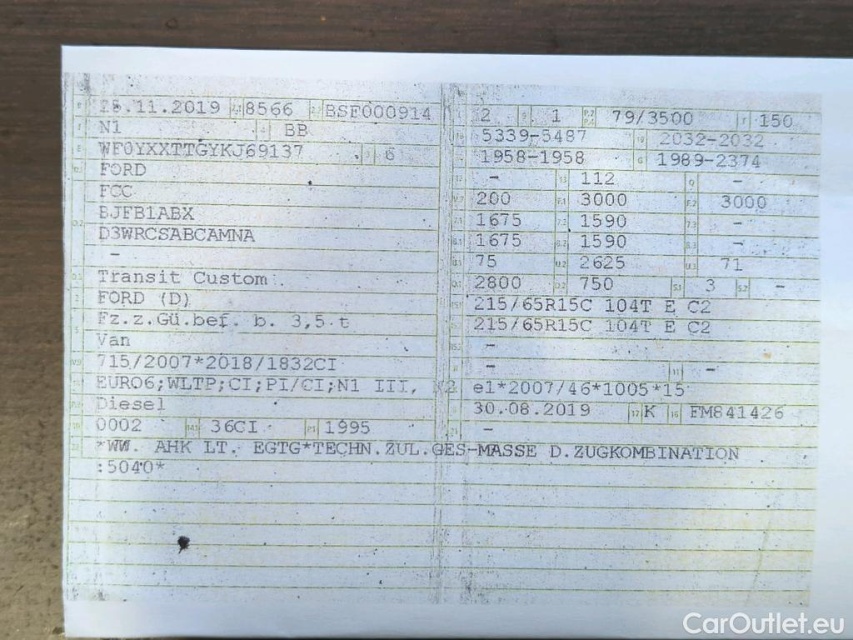 25.11.2019 8566 BSF000914
N1 BB
WF0YXXTTGYKJ69137 6
FORD
FCC
BJFB1ABX
D3WRCSABCAMNA
–
Transit Custom
FORD (D)
Fz.z.Gü.bef. b. 3,5 t
Van
715/2007*2018/1832CI
EURO6;WLTP;CI;PI/CI;N1 III, N2
Diesel
0002 36CI 1995
2 1 79/3500 150
5339-5487 2032-2032
1958-1958 1989-2374
– 112 –
200 3000 3000
1675 1590 –
1675 1590 –
75 2625 71
2800 750 3 –
215/65R15C 104T E C2
215/65R15C 104T E C2
–
– –
e1*2007/46*1005*15
30.08.2019 K FM841426
–
*WW. AHK LT. EGTG*TECHN.ZUL.GES-MASSE D.ZUGKOMBINATION
:5040*
CarOutlet.eu